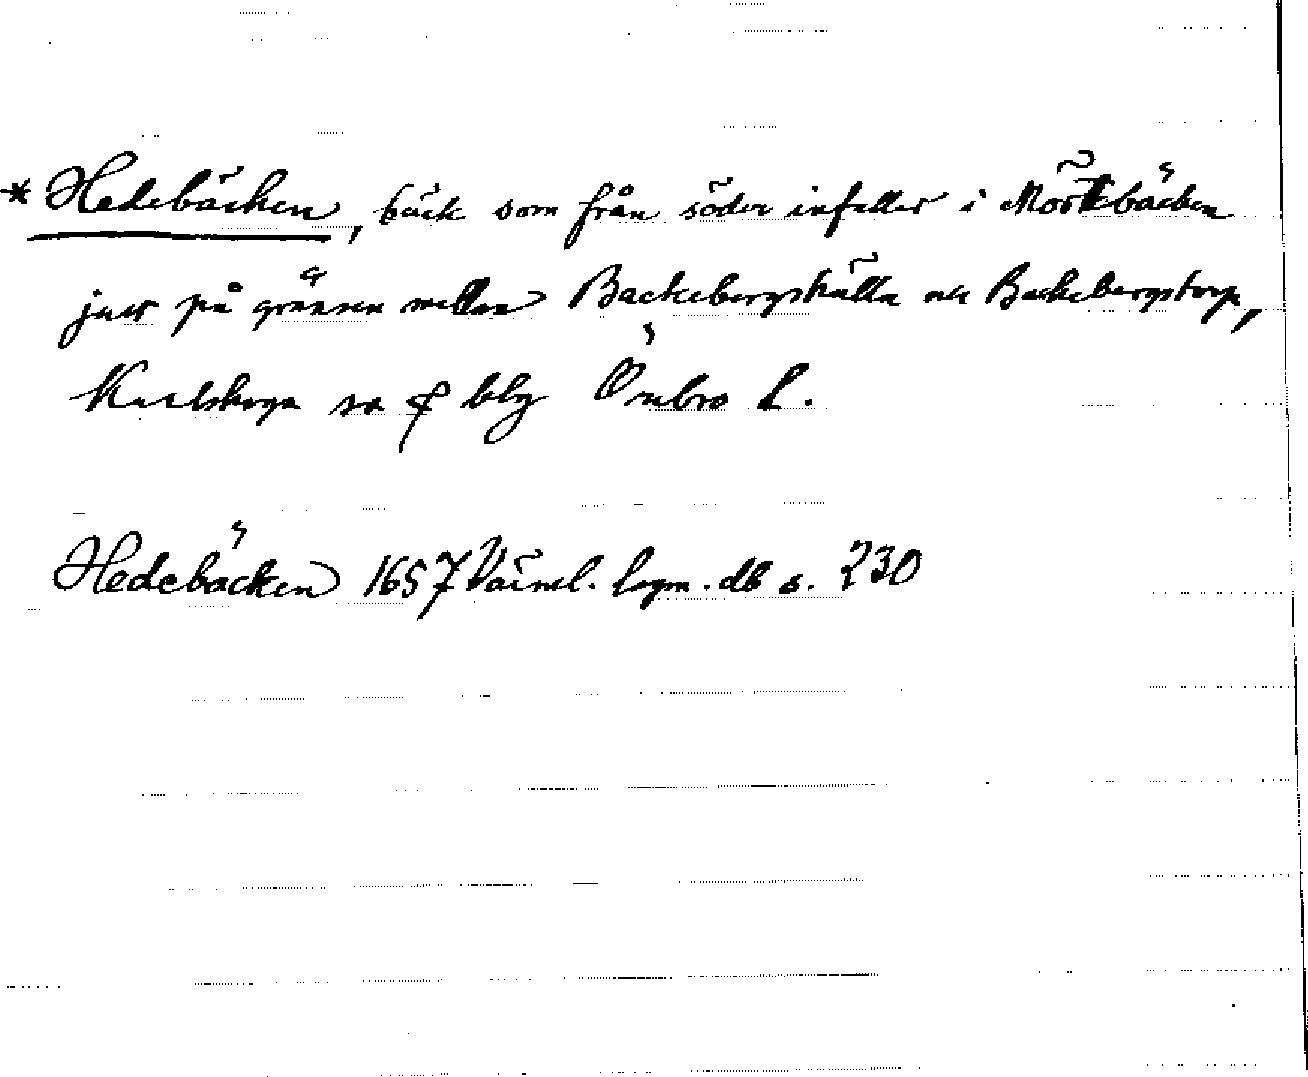 * Hedebäcken, bäck som från söder infaller i Mörtbäcken
just på gränsen mellan Backebergshälla och Backebergstorp,
Karlskoga sn o blg Örebro l.
Hedebäcken 1657 Värml. lagm. db s. 230